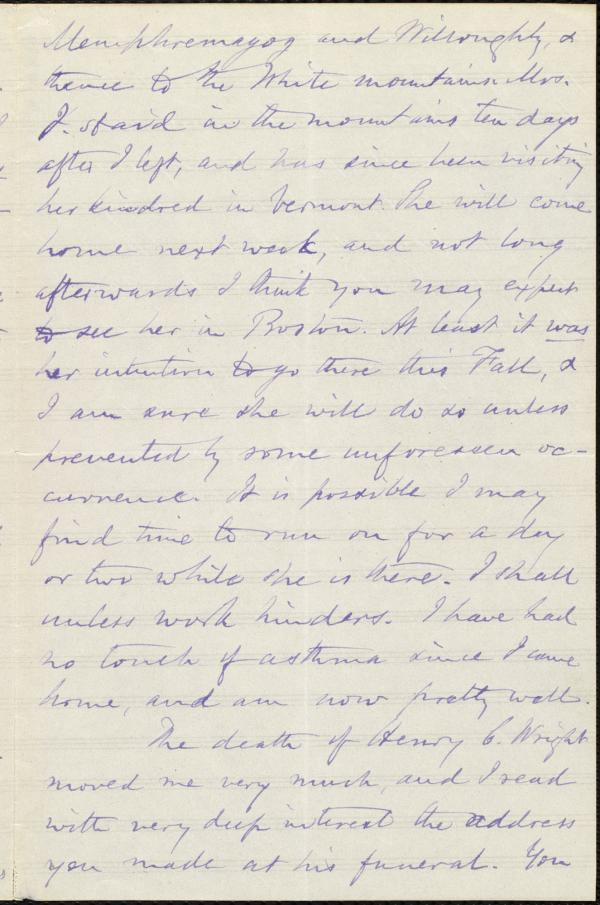 Memphremagog and Willoughby, &
thence to the White mountains. Mrs.
J. staid in the mountains ten days
after I left, and has since been visiting
her kindred in Vermont. She will come
home next week, and not long
afterwards I think you may expect
to see her in Boston. At least it was
her intention to go there this Fall, &
I am sure she will do so unless
prevented by some unforeseen oc-
currence. It is possible I may
find time to run on for a day
or two while she is there. I shall
unless work hinders. I have had
no touch of asthma since I came
home, and am now pretty well.
The death of Henry C. Wright
moved me very much, and I read
with very deep interest the address
you made at his funeral. You